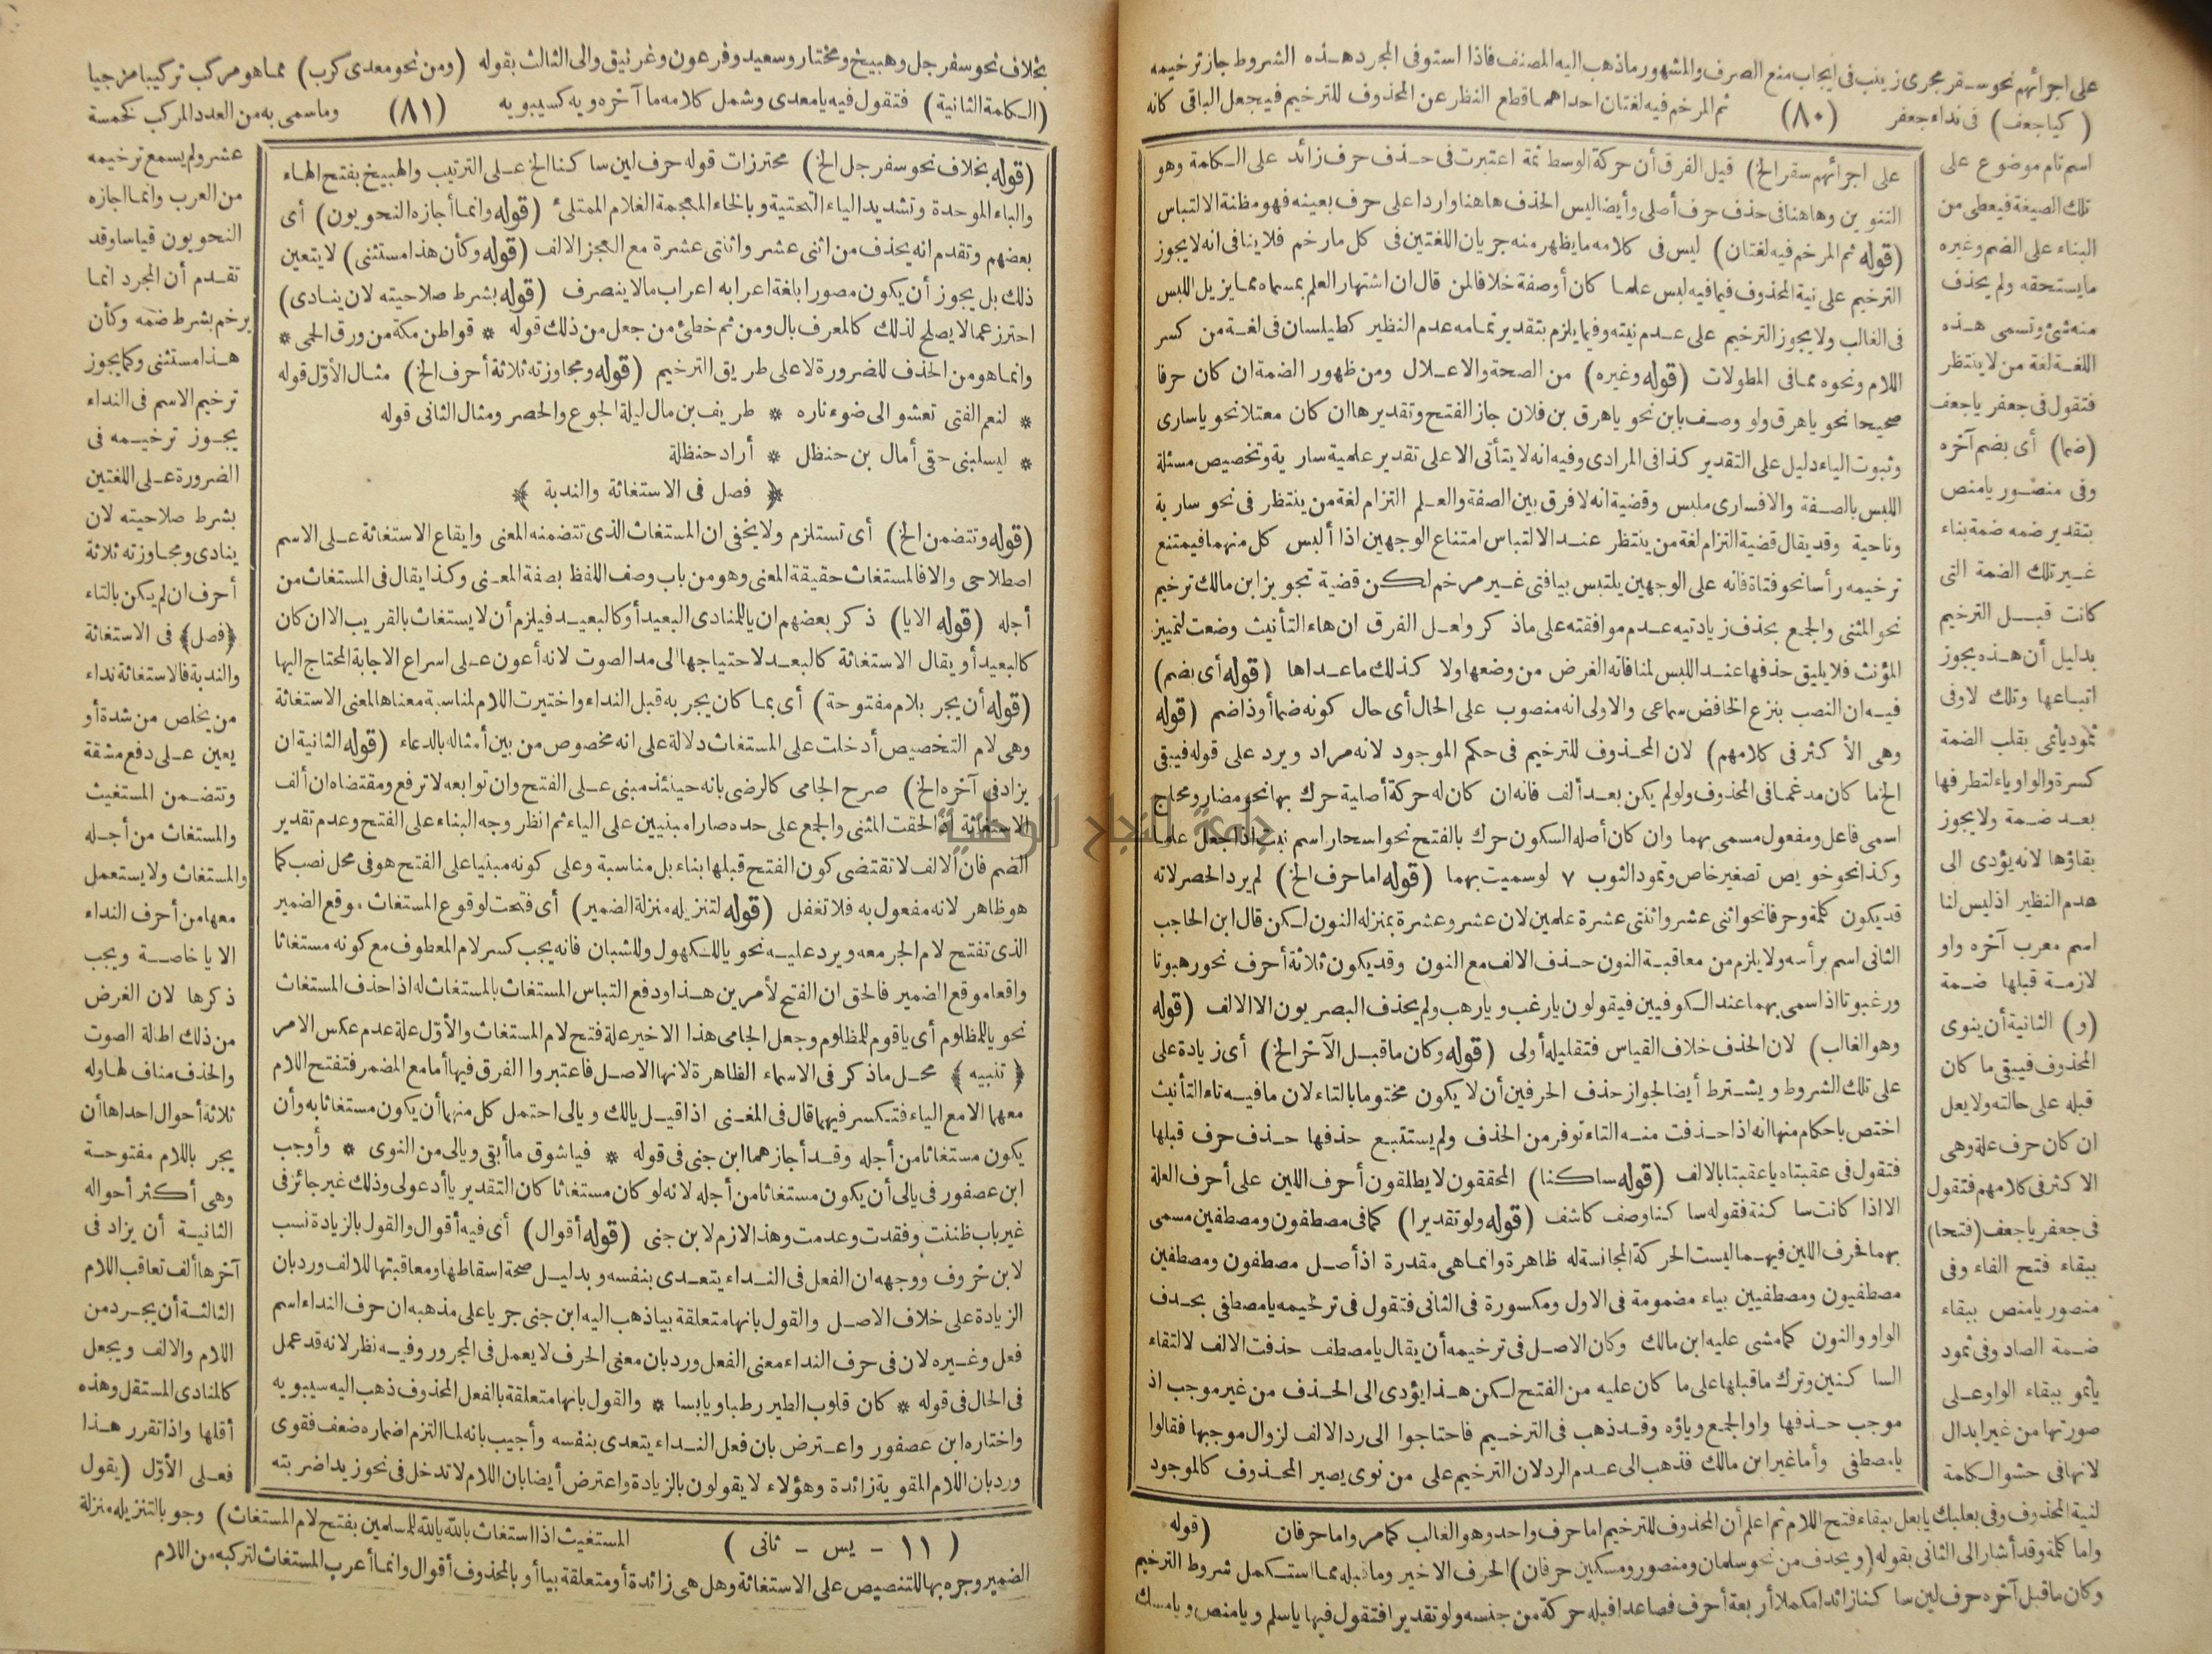 على اجرائهم نحو سقر مجرى زينب فى ايجاب منع الصرف والمشهور ما ذهب اليه المصنف فاذا استوفى المجرد هذه الشروط جاز ترخيمه
(كياجعف) فى نداء جعفر (٨٠) ثم المرخم فيه لغتان احداهما قطع النظر عن المحذوف للترخيم فيجعل الباقى كانه
اسم تام موضوع على
تلك الصيغة فيعطى من
البناء على الضم وغيره
ما يستحقه ولم يحذف
منه شئ وتسمى هذه
اللغة لغة من لا ينتظر
فتقول فى جعفر ياجعف
(ضما) أى بضم آخره
وفى منصور يامنص
بتقدير ضمه ضمة بناء
غير تلك الضمة التى
كانت قبل الترخيم
بدليل أن هذه يجوز
اتباعها وتلك لا وفى
ثمود ياثمى بقلب الضمة
كسرة والواو ياء لتطرفها
بعد ضمة ولا يجوز
بقاؤها لانه يؤدى الى
عدم النظير اذ ليس لنا
اسم معرب آخره واو
لازمة قبلها ضمة
(و) الثانية أن ينوى
المحذوف فيبقى ما كان
قبله على حالته ولا يعل
ان كان حرف علة وهى
الاكثر فى كلامهم فتقول
فى جعفر ياجعف (فتحا)
ببقاء فتح الفاء وفى
منصور يامنص ببقاء
ضمة الصاد وفى ثمود
ياثمو ببقاء الواو على
صورتها من غير ابدال
لانها فى حشو الكلمة
على اجرائهم سقر الخ) قيل الفرق أن حركة الوسط ثمة اعتبرت فى حذف حرف زائد على الكلمة وهو
التنوين وهاهنا فى حذف حرف أصلى وأيضا ليس الحذف هاهنا واردا على حرف بعينه فهو مظنة الالتباس
(قوله ثم المرخم فيه لغتان) ليس فى كلامه ما يظهر منه جريان اللغتين فى كل مارخم فلا ينافى انه لا يجوز
الترخيم على نية المحذوف فيما فيه لبس علما كان أو صفة خلافا لمن قال ان اشتهار العلم بمسماه مما يزيل اللبس
فى الغالب ولا يجوز الترخيم على عدم نيته وفيما يلزم بتقدير تمامه عدم النظير كطيلسان فى لغة من كسر
اللام ونحوه مما فى المطولات (قوله وغيره) من الصحة والاعلال ومن ظهور الضمة ان كان حرفا
صحيحا نحو ياهرق ولو وصف بابن نحو ياهرق بن فلان جاز الفتح وتقديرها ان كان معتلا نحو ياسارى
وثبوت الياء دليل على التقدير كذا فى المرادى وفيه انه لا يتأتى الا على تقدير علمية سارية وتخصيص مسئلة
اللبس بالصفة والا فسارى ملبس وقضية انه لا فرق بين الصفة والعلم التزام لغة من ينتظر فى نحو سارية
وناحية وقد يقال قضية التزام لغة من ينتظر عند الالتباس امتناع الوجهين اذا ألبس كل منهما فيمتنع
ترخيمه رأسا نحو فتاة فانه على الوجهين يلتبس بيافتى غير مرخم لكن قضية تجويز ابن مالك ترخيم
نحو المثنى والجمع بحذف زيادتيه عدم موافقته على ماذكر ولعل الفرق ان هاء التأنيث وضعت لتمييز
المؤنث فلا يليق حذفها عند اللبس لمنافاته الغرض من وضعها ولا كذلك ما عداها (قوله أى بضم)
فيه ان النصب بنزع الخافض سماعى والاولى انه منصوب على الحال أى حال كونه ضما أو ذا ضم (قوله
وهى الأكثر فى كلامهم) لان المحذوف للترخيم فى حكم الموجود لانه مراد ويرد على قوله فيبقى
الخ ما كان مدغما فى المحذوف ولو لم يكن بعد ألف فانه ان كان له حركة أصلية حرك بها نحو مضار ومحاج
اسمى فاعل ومفعول مسمى بهما وان كان أصله السكون حرك بالفتح نحو اسحار اسم نبت اذا جعل علما
وكذا نحو خويص تصغير خاص وتمود الثوب ٧ لو سميت بهما (قوله اما حرف الخ) لم يرد الحصر لانه
قد يكون كلمة وحرفا نحو اثنى عشر واثنتى عشرة علمين لان عشر وعشرة بمنزلة النون لكن قال ابن الحاجب
الثانى اسم برأسه ولا يلزم من معاقبة النون حذف الالف مع النون وقد يكون ثلاثة أحرف نحو رهبوتا
ورغبوتا اذا سمى بهما عند الكوفيين فيقولون يارغب ويارهب ولم يحذف البصريون الا الالف (قوله
وهو الغالب) لان الحذف خلاف القياس فتقليله أولى (قوله وكان ما قبل الآخر الخ) أى زيادة على
على تلك الشروط ويشترط أيضا لجواز حذف الحرفين أن لا يكون مختوما بالتاء لان ما فيه تاء التأنيث
اختص باحكام منها انه اذا حذفت منه التاء توفر من الحذف ولم يستتبع حذفها حذف حرف قبلها
فتقول فى عقبتاه ياعقبتا بالالف (قوله ساكنا) المحققون لا يطلقون أحرف اللين على أحرف العلة
الا اذا كانت ساكنة فقوله ساكنا وصف كاشف (قوله ولو تقديرا) كما فى مصطفون ومصطفين مسمى
بهما فحرف اللين فيهما ليست الحركة المجانسة له ظاهرة وانما هى مقدرة اذ أصل مصطفون ومصطفين
مصطفيون ومصطفيين بياء مضمومة فى الاول ومكسورة فى الثانى فتقول فى ترخيمه يامصطفى بحدف
الواو والنون كما مشى عليه ابن مالك وكان الاصل فى ترخيمه أن يقال يامصطف حذفت الالف لالتقاء
الساكنين وترك ما قبلها على ما كان عليه من الفتح لكن هذا يؤدى الى الحذف من غير موجب اذ
موجب حذفها واو الجمع وياؤه وقد ذهب فى الترخيم فاحتاجوا الى رد الالف لزوال موجبها فقالوا
يامصطفى وأما غير ابن مالك فذهب الى عدم الرد لان الترخيم على من نوى يصير المحذوف كالموجود
لنية المحذوف وفى بعلبك يابعل ببقاء فتح اللام ثم اعلم أن المحذوف للترخيم اما حرف واحد وهو الغالب كما مر واما حرفان (قوله
واما كلمة وقد أشار الى الثانى بقوله (ويحذف من نحو سلمان ومنصور ومسكين حرفان) الحرف الاخير وما قبله مما استكمل شروط الترخيم
وكان ما قبل آخره حرف لين ساكنا زائدا مكملا أربعة أحرف فصاعدا قبله حركة من جنسه ولو تقديرا فتقول فيها ياسلم ويامنص ويامسك
بخلاف نحو سفرجل وهبيخ ومختار وسعيد وفرعون وغرنيق والى الثالث بقوله (ومن نحو معدى كرب) مما هو مركب تركيبا مزجيا
(الكلمة الثانية) فتقول فيه يامعدى وشمل كلامه ما آخره ويه كسيبويه (٨١) وما سمى به من العدد المركب كخمسة
(قوله بخلاف نحو سفرجل الخ) محترزات قوله حرف لين ساكنا الخ على الترتيب والهبيخ بفتح الهاء
والباء الموحدة وتشديد الياء التحتية وبالخاء المعجمة الغلام الممتلئ (قوله وانما أجازه النحويون) أى
بعضهم وتقدم انه يحذف من اثنى عشر واثنتى عشرة مع العجز الالف (قوله وكأن هذا مستثنى) لا يتعين
ذلك بل يجوز أن يكون مصورا بلغة اعرابه اعراب مالا ينصرف (قوله بشرط صلاحيته لان ينادى)
احترز عما لا يصلح لذلك كالمعرف بال ومن ثم خطئ من جعل من ذلك قوله * قواطن مكة من ورق الحمى *
وانما هو من الحذف للضرورة لا على طريق الترخيم (قوله ومجاوزته ثلاثة أحرف الخ) مثال الأول قوله
* لنعم الفتى تعشو الى ضوء ناره * طريف بن مال ليلة الجوع والحصر ومثال الثانى قوله
* ليسلبنى حقى أمال بن حنظل * أراد حنظلة
﴿فصل فى الاستغاثة والندبة﴾
(قوله وتتضمن الخ) أى تستلزم ولا يخفى ان المستغاث الذى تتضمنه المعنى وايقاع الاستغاثة على الاسم
اصطلاحى والا فالمستغاث حقيقة المعنى وهو من باب وصف اللفظ بصفة المعنى وكذا يقال فى المستغاث من
أجله (قوله الا يا) ذكر بعضهم ان يا للمنادى البعيد أو كالبعيد فيلزم أن لا يستغاث بالقريب الا ان كان
كالبعيد أو يقال الاستغاثة كالبعد لاحتياجها الى مد الصوت لانه أعون على اسراع الاجابة المحتاج اليها
(قوله أن يجر بلام مفتوحة) أى بما كان يجر به قبل النداء واختيرت اللام لمناسبة معناها لمعنى الاستغاثة
وهى لام التخصيص أدخلت على المستغاث دلالة على انه مخصوص من بين أمثاله بالدعاء (قوله الثانية ان
يزاد فى آخره الخ) صرح الجامى كالرضى بانه حينئذ مبنى على الفتح وان توابعه لا ترفع ومقتضاه ان ألف
الاستغاثة اذا لحقت المثنى والجمع على حده صارا مبنيين على الياء ثم انظر وجه البناء على الفتح وعدم تقدير
الضم فان الالف لا تقتضى كون الفتح قبلها بناء بل مناسبة وعلى كونه مبنيا على الفتح هو فى محل نصب كما
هو ظاهر لانه مفعول به فلا تغفل (قوله لتنزيله منزلة الضمير) أى فتحت لوقوع المستغاث موقع الضمير
الذى تفتح لام الجر معه ويرد عليه نحو ياللكهول وللشبان فانه يجب كسر لام المعطوف مع كونه مستغاثا
واقعا موقع الضمير فالحق ان الفتح لأمرين هذا ودفع التباس المستغاث بالمستغاث له اذا حذف المستغاث
نحو ياللمظلوم أى ياقوم للمظلوم وجعل الجامى هذا الاخير علة فتح لام المستغاث والأول علة عدم عكس الامر
﴿تنبيه﴾ محل ماذكر فى الاسماء الظاهرة لانها الاصل فاعتبروا الفرق فيها أما مع المضمر فتفتح اللام
معهما الا مع الياء فتكسر فيهما قال فى المغنى اذا قيل يالك ويالى احتمل كل منهما أن يكون مستغاثا به وأن
يكون مستغاثا من أجله وقد أجازهما ابن جنى فى قوله * فياشوق ما أبقى ويالى من النوى * وأوجب
ابن عصفور فى يالى أن يكون مستغاثا من أجله لانه لو كان مستغاثا كان التقدير ياأدعولى وذلك غير جائز فى
غير باب ظننت وفقدت وعدمت وهذا لازم لابن جنى (قوله أقوال) أى فيه أقوال والقول بالزيادة نسب
لابن خروف ووجهه ان الفعل فى النداء يتعدى بنفسه وبدليل صحة اسقاطها ومعاقبتها للالف ورد بان
الزيادة على خلاف الاصل والقول بانها متعلقة بيا ذهب اليه ابن جنى جريا على مذهبه ان حرف النداء اسم
فعل وغيره لان فى حرف النداء معنى الفعل ورد بان معنى الحرف لا يعمل فى المجرور وفيه نظر لانه قد عمل
فى الحال فى قوله * كان قلوب الطير رطبا ويابسا * والقول بانها متعلقة بالفعل المحذوف ذهب اليه سيبويه
واختاره ابن عصفور واعترض بان فعل النداء يتعدى بنفسه وأجيب بانه لما التزم اضماره ضعف فقوى
ورد بان اللام المقوية زائدة وهؤلاء لا يقولون بالزيادة واعترض أيضا بان اللام لا تدخل فى نحو زيدا ضربته
عشر ولم يسمع ترخيمه
من العرب وانما اجازه
النحويون قياسا وقد
تقدم أن المجرد انما
يرخم بشرط ضمه وكأن
هذا مستثنى وكما يجوز
ترخيم الاسم فى النداء
يجوز ترخيمه فى
الضرورة على اللغتين
بشرط صلاحيته لان
ينادى ومجاوزته ثلاثة
أحرف ان لم يكن بالتاء
﴿فصل﴾ فى الاستغاثة
والندبة فالاستغاثة نداء
من يخلص من شدة أو
يعين على دفع مشقة
وتتضمن المستغيث
والمستغاث من أجله
والمستغاث ولا يستعمل
معها من أحرف النداء
الا يا خاصة ويجب
ذكرها لان الغرض
من ذلك اطالة الصوت
والحذف مناف لها وله
ثلاثة أحوال احداها أن
يجر باللام مفتوحة
وهى أكثر أحواله
الثانية أن يزاد فى
آخرها ألف تعاقب اللام
الثالثة أن يجرد من
اللام والالف ويجعل
كالمنادى المستقل وهذه
أقلها واذا تقرر هذا
فعلى الأول (يقول
المستغيث اذا استغاث بالله يالله للمسلمين بفتح لام المستغاث) وجوبا لتنزيله منزلة
( ١١ - يس - ثانى )
الضمير وجره بها للتنصيص على الاستغاثة وهل هى زائدة أو متعلقة بيا أو بالمحذوف أقوال وانما أعرب المستغاث لتركبه من اللام
جامعة النجاح الوطنية